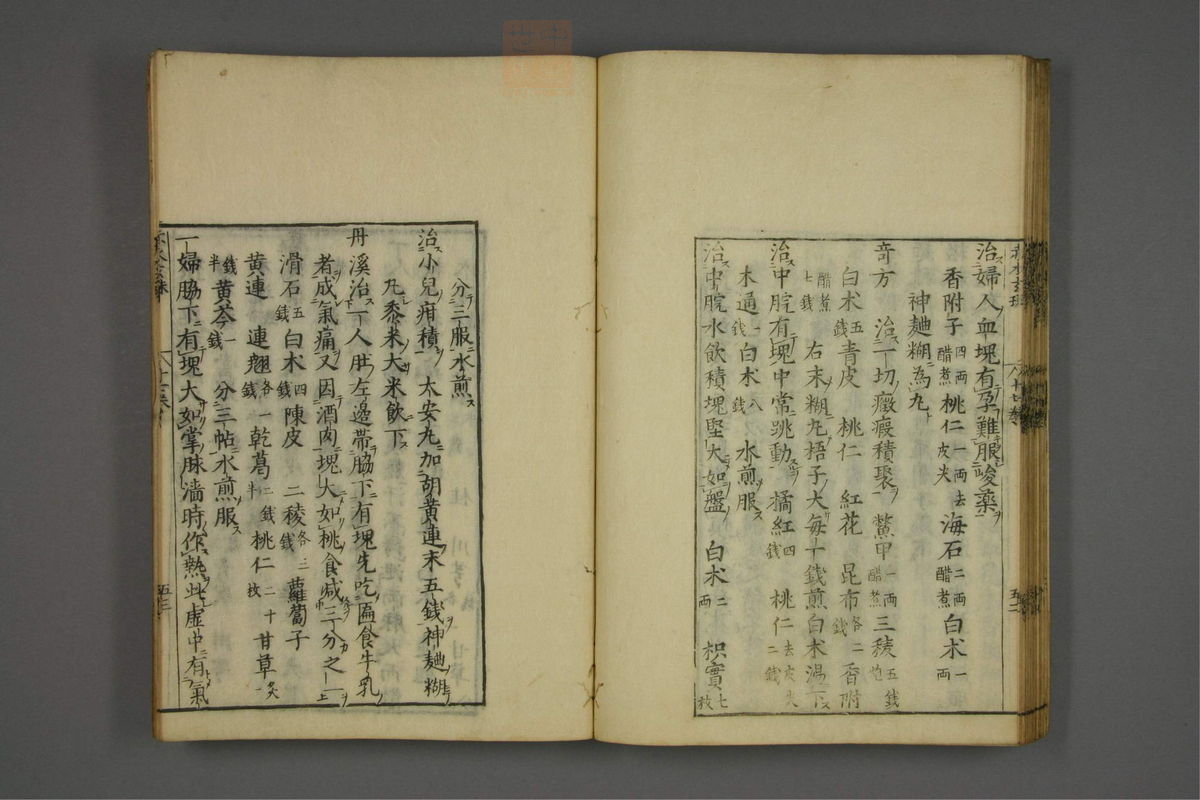 治婦人血塊有孕難服峻藥
香附子四両醋煮 桃仁一両去皮尖 海石二両醋煮 白朮一両
神麯糊為丸
竒方 治一切癥瘕積聚 鱉甲一両醋煮 三稜五錢炮
白朮五錢 青皮 桃仁 紅花 昆布各二錢 香附
醋煮七錢 右末糊丸梧子大毎十錢煎白朮湯下
治中脘有塊中常跳動 橘紅四錢 桃仁去皮尖二錢
木通一錢 白朮八錢 水煎服
治中脘水飲積塊堅大如盤 白朮二両 枳實七枚
分三服水煎
治小兒疳積 太安丸加胡黄連末五錢神麯糊
丸黍米大米飲下
丹溪治一人肚左邉帯脇下有塊先吃匾食牛乳
者成氣痛又因酒肉塊大如桃食减三分之一
滑石五錢 白朮四錢 陳皮 二稜各三錢 蘿蔔子
黄連 連翹各一錢 乾葛二錢半 桃仁二十枚 甘草炙一
錢半 黄芩一錢 分三帖水煎服
一婦脇下有塊大如掌脉濇時作熱此虚中有氣